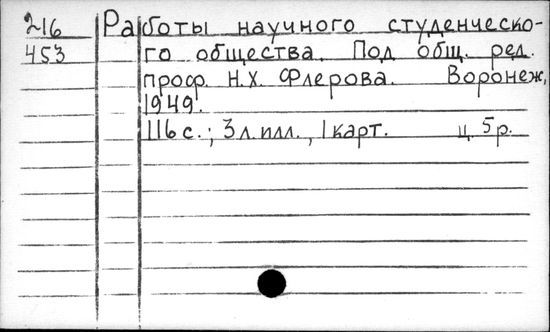 216 Работы научного студенческо-
453 го общества. Под общ. ред.
проф. Н.Х. Флерова. Воронеж,
1949.
116 с.; 3 л. илл., 1 карт. ц. 5 р.